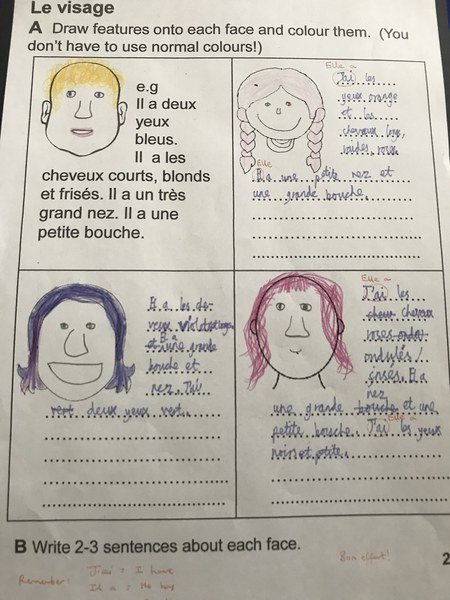 Le visage
A Draw features onto each face and colour them. (You
don't have to use normal colours!)
e.g
Il a deux
yeux
bleus.
Il a les
cheveux courts, blonds
et frisés. Il a un très
grand nez. Il a une
petite bouche.
Elle a
J'ai les
yeux orange
et les
cheveux
Elle
a une petite nez et
une grande bouche.
Il a les
violet
et une grande
bouche et
nez. J'ai
vert deux yeux vert.
Elle a
J'ai les
cheveux
roses
ondulés /
Il a
nez
une grande bouche et une
petite bouche. J'ai les yeux
Elle a
noir et petite.
B Write 2-3 sentences about each face.
Bon effort!
2
Remember! J'ai = I have
Il a = He has